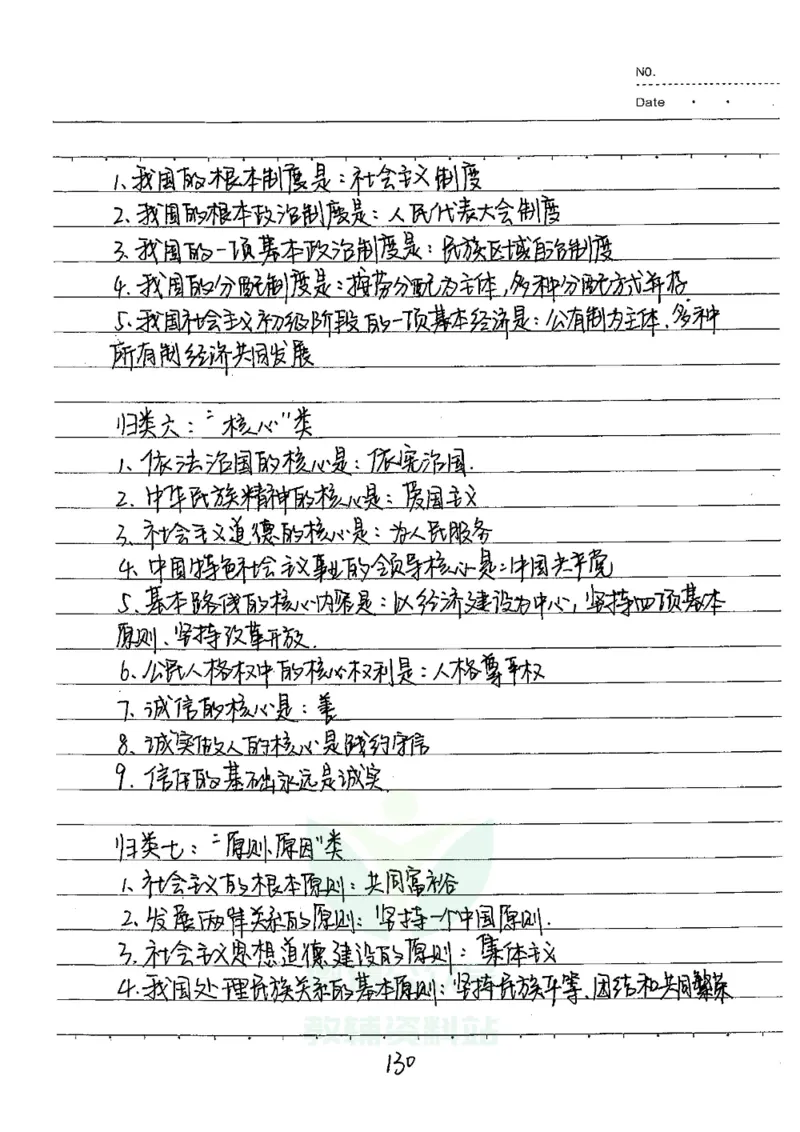 NO.
Date
1、我国的根本制度是：社会主义制度
2、我国的根本政治制度是：人民代表大会制度
3、我国的一项基本政治制度是：民族区域自治制度
4、我国的分配制度是：按劳分配为主体，多种分配方式并存
5、我国社会主义初级阶段的一项基本经济是：公有制为主体、多种
所有制经济共同发展
归类六：“核心”类
1、依法治国的核心是：依宪治国.
2、中华民族精神的核心是：爱国主义
3、社会主义道德的核心是：为人民服务
4、中国特色社会主义事业的领导核心是：中国共产党
5、基本路线的核心内容是：以经济建设为中心，坚持四项基本
原则、坚持改革开放.
6、公民人格权中的核心权利是：人格尊严权
7、诚信的核心是：善
8、诚实做人的核心是践约守信
9、信任的基础永远是诚实.
归类七：“原则、原因”类
1、社会主义的根本原则：共同富裕
2、发展两岸关系的原则：坚持一个中国原则.
3、社会主义思想道德建设的原则：集体主义
4、我国处理民族关系的基本原则：坚持民族平等、团结和共同繁荣
教辅资料站
130